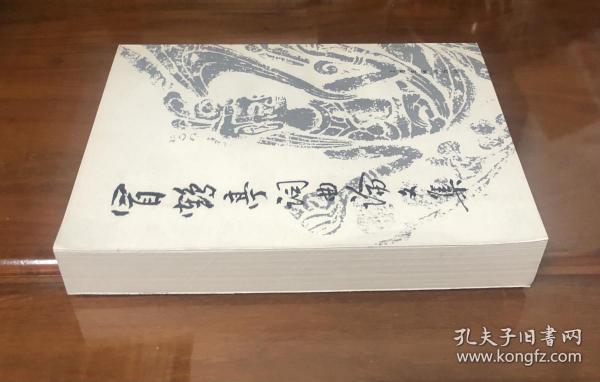 冒鹤亭词曲论文集
孔夫子旧书网
www.kongfz.com